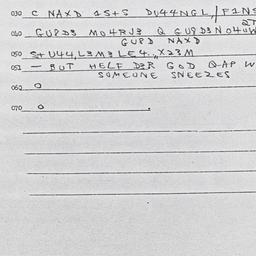 030 C NAXD 1S+S DU44NGL, / F1NS
040 GUPD3 MO4RJ3 Q GUPD3NO4UW
GUPD NAXD
050 S+U44,L3M3LE4.,X23M
051 — BUT HELF D3R GOD Q-AP W
SOMEONE SNEEZES
060 O
070 O